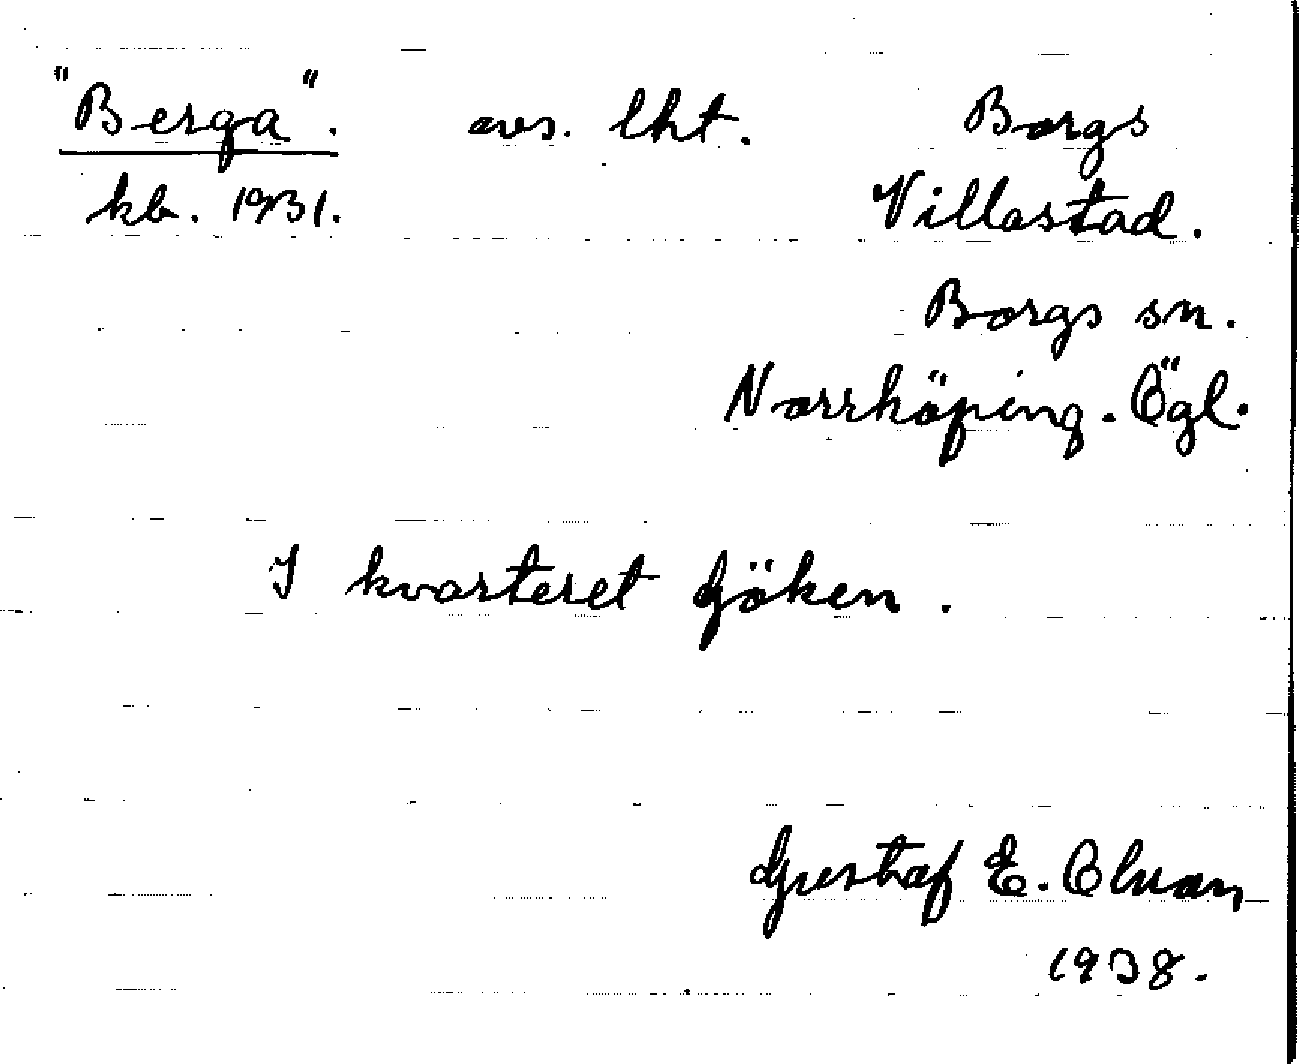 "Berga". avs. lht. Borgs
kb. 1931. Villastad.
Borgs sn.
Norrköping. Ögl.
I kvarteret Göken.
Gustaf E. Olson
1938.